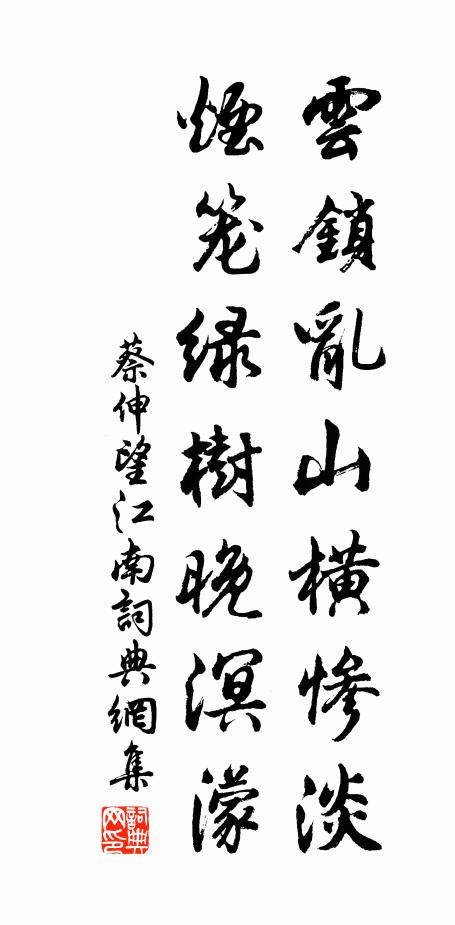 雲鎖亂山横慘淡
煙笼緑樹晚溟濛
蔡伸望江南詞典網集
詞典网印